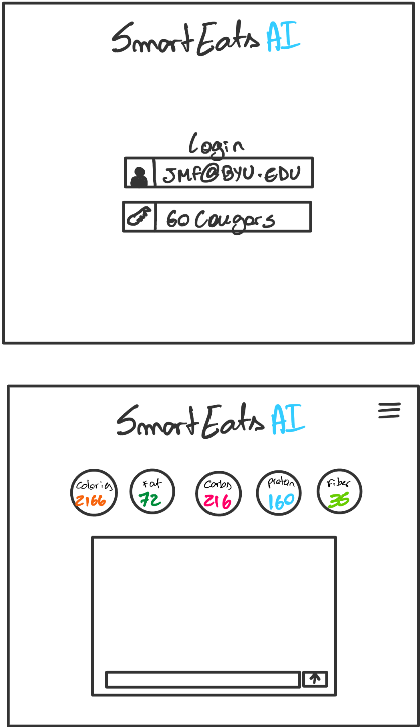 SmartEats AI
Login
JMF@BYU.EDU
GO Cougars
SmartEats AI
Calories
2166
Fat
72
Carbs
216
Protein
160
Fiber
35